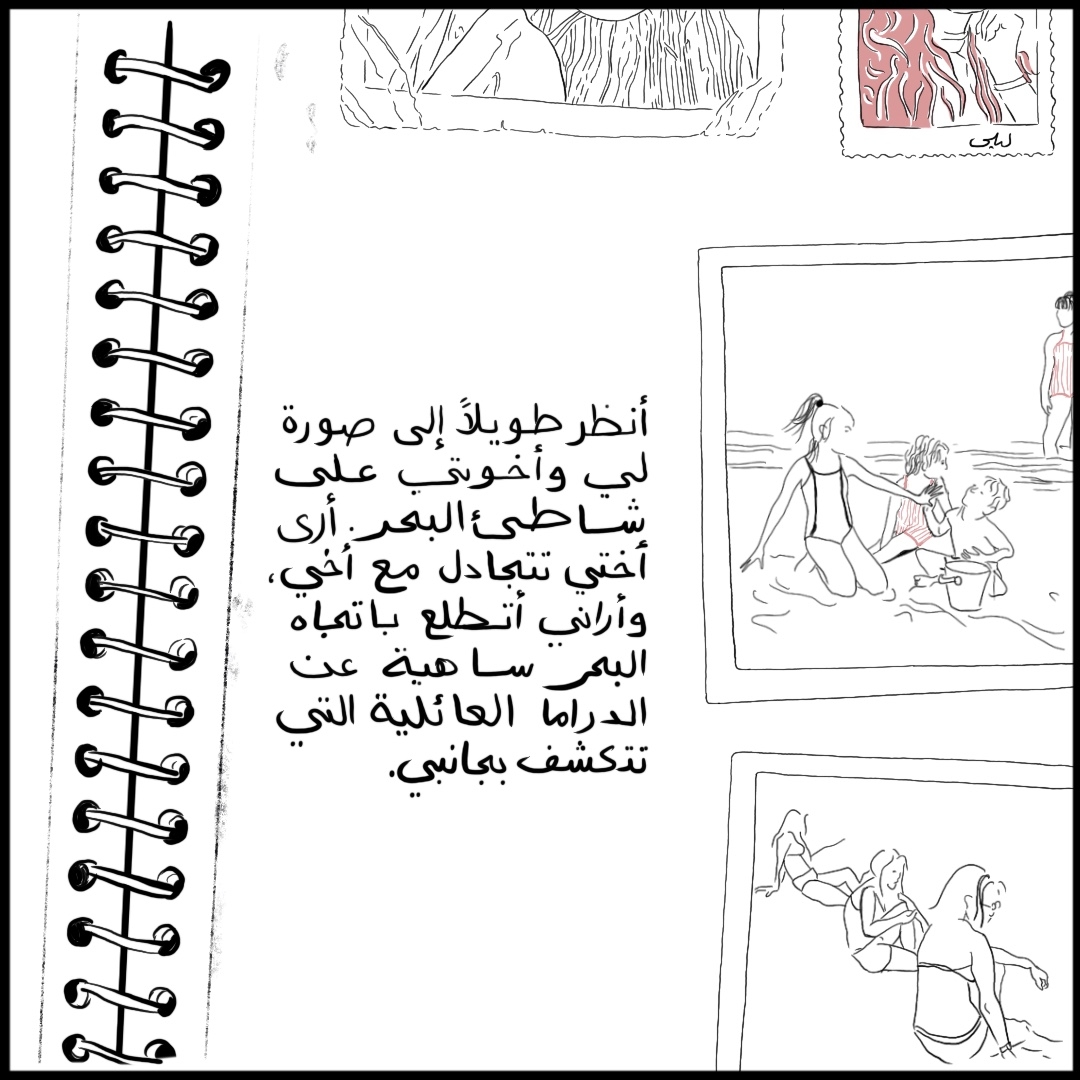 ليلى
أنظر طويلاً إلى صورة
لي وأخوتي على
شاطئ البحر. أرى
أختي تتجادل مع أخي،
وأراني أتطلع باتجاه
البحر ساهية عن
الدراما العائلية التي
تتكشف بجانبي.